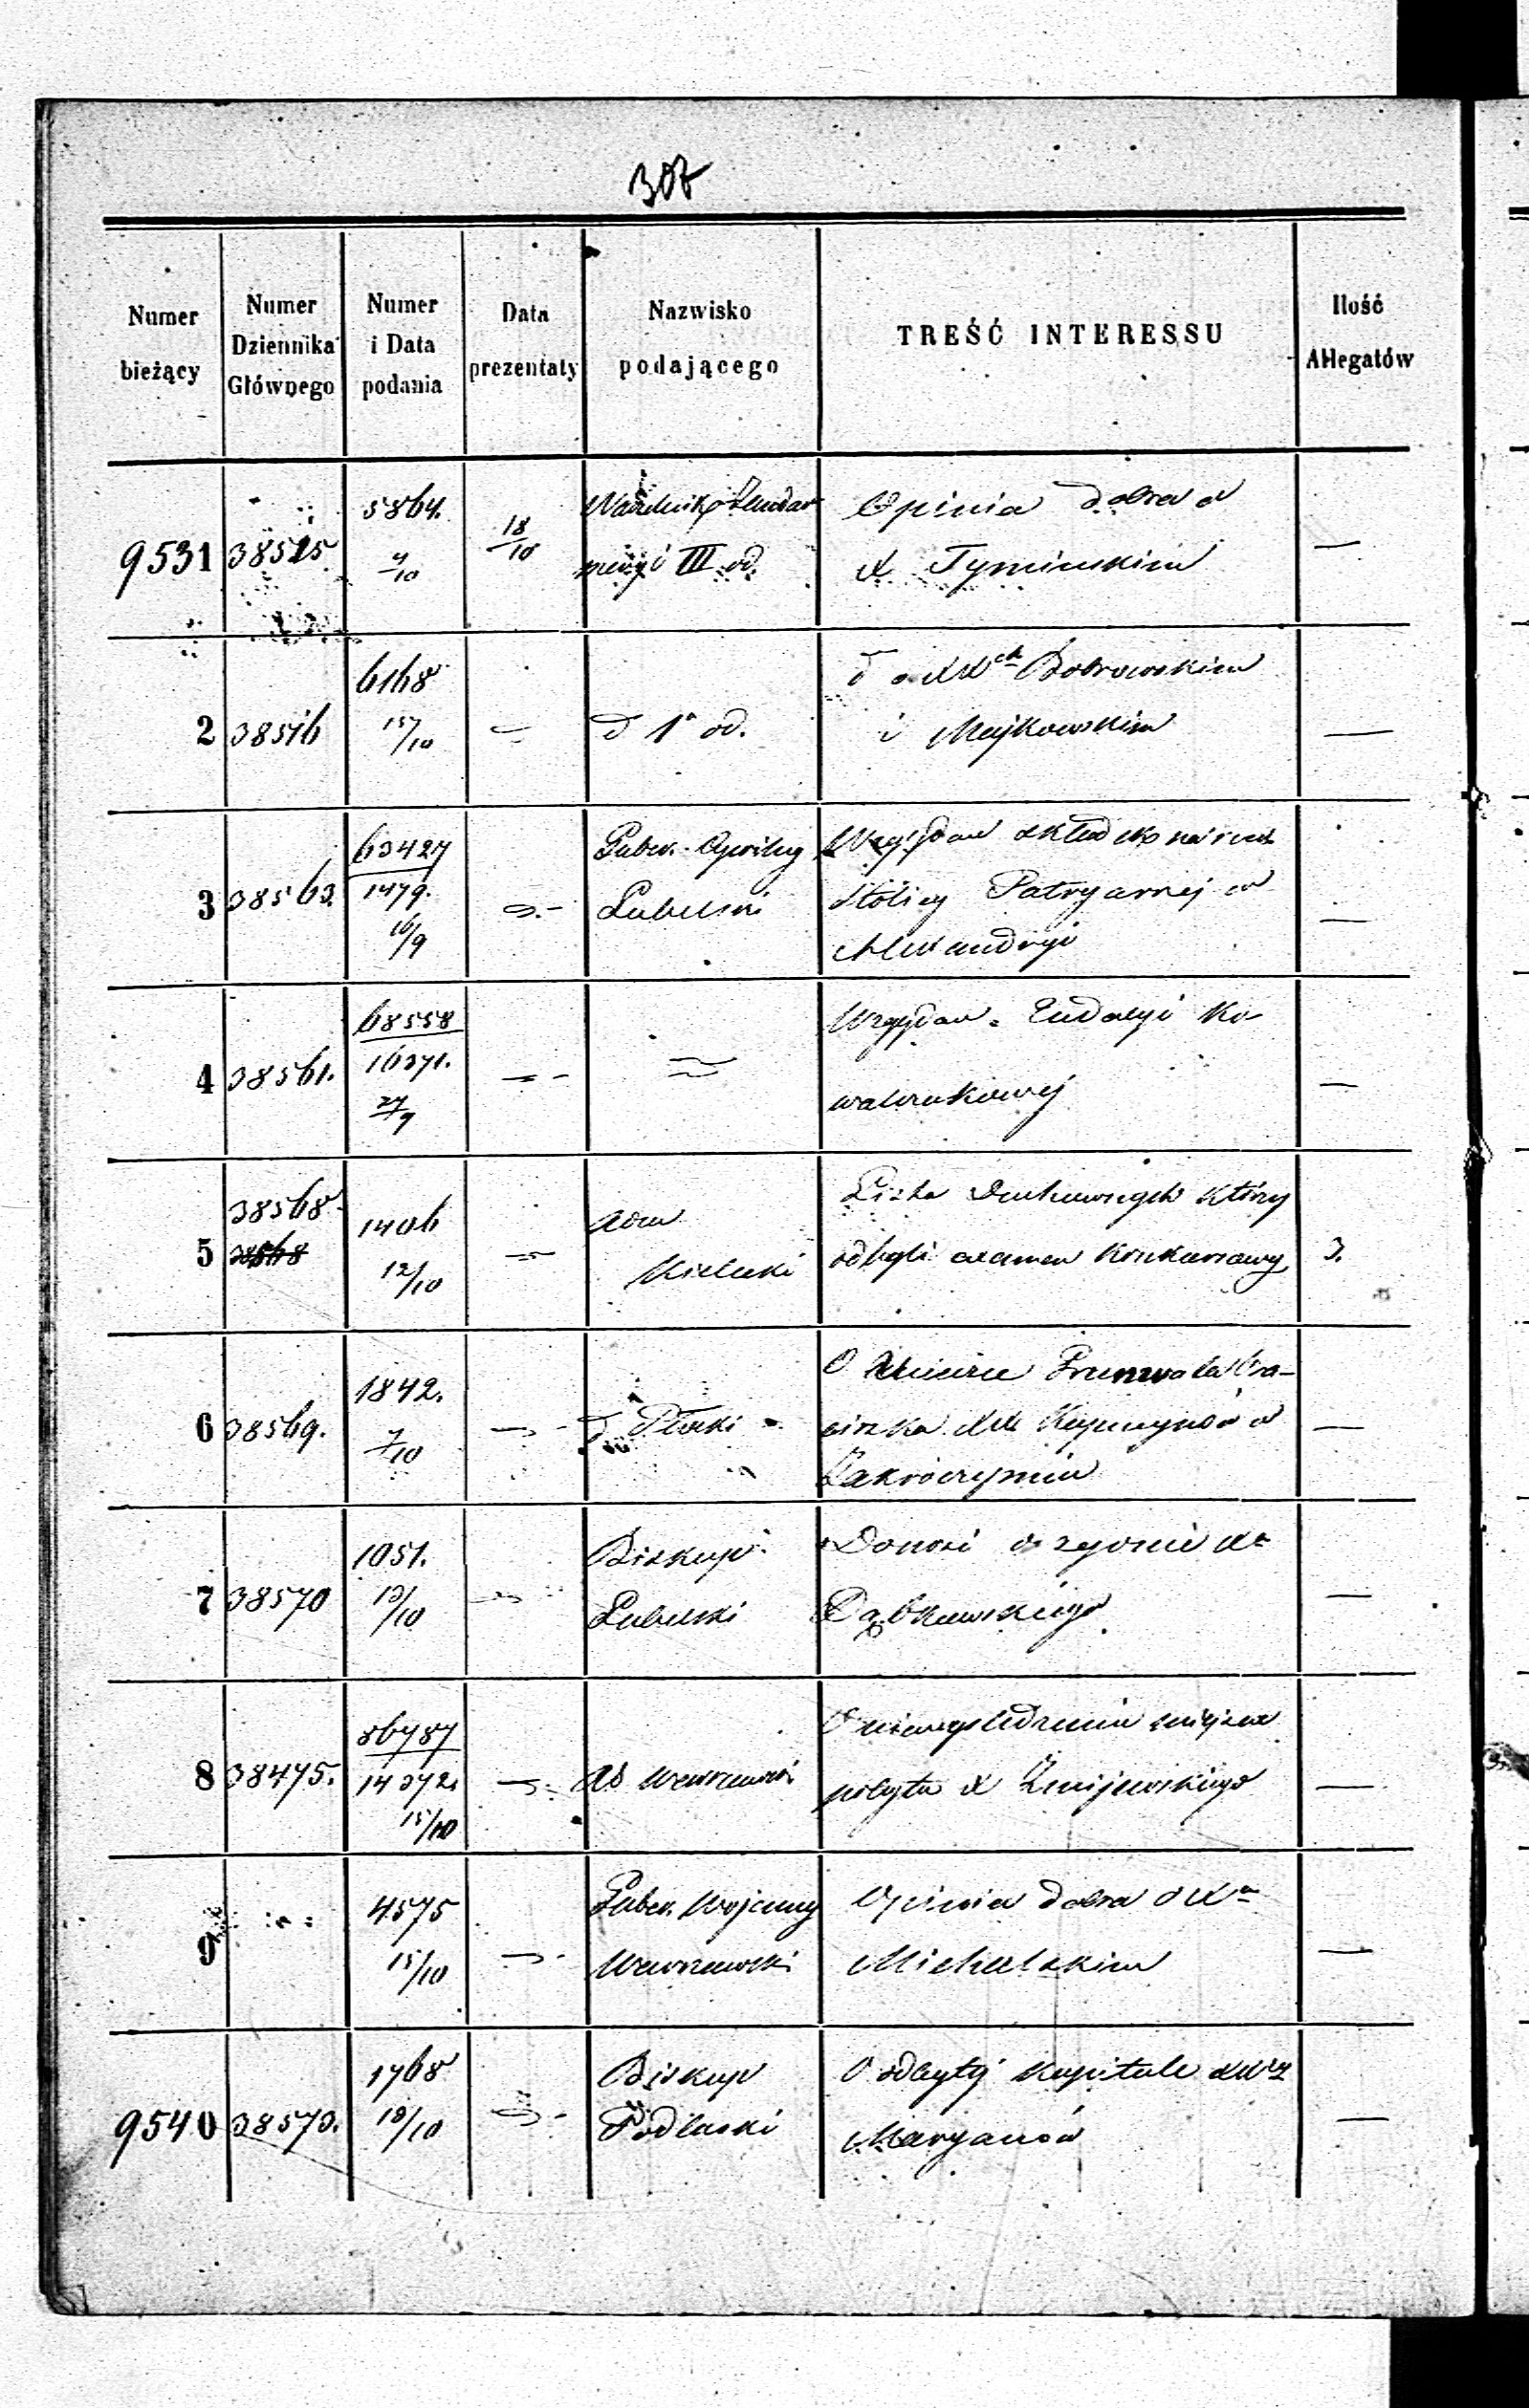 307
Numer bieżący | Numer Dziennika Głównego | Numer i Data podania | Data prezentaty | Nazwisko podającego | TREŚĆ INTERESSU | Ilość Allegatów
9531 | 38515 | 5864. 4/10 | 18/10 | Naczelnik Żandarmeryi III od. | Opinia dobra o X Tymińskim | —
2 | 38516 | 6168 15/10 | — | d 1o od. | d o XXch Bobrowskim i Majkowskim | —
3 | 38563. | 63427 1479. 16/9 | — | Guber. Cywilny Lubelski | Względem składek na rzecz Stolicy Patryarszej w Alexandryi | —
4 | 38561. | 68558 16371. 27/9 | — | = | Względem Eudoxyi Ko-
walczukowej | —
5 | 38568 | 1406 12/10 | — | Adm Kielecki | Lista Duchownych którzy
odbyli examen konkursowy | 3.
6 | 38569. | 1842. 7/10 | — | d Płocki | O śmierci
XX Kapucynów w
Zakroczymiu | —
7 | 38570 | 1051. 13/10 | — | Biskup Lubelski | Donosi o zgonie Xa
Dąbkowskiego | —
8 | 38475. | 86787 14372. 15/10 | — | Warszawski | O niewyśledzeniu miejsca
pobytu X Żmijewskiego | —
9 | 4575 15/10 | — | Guber. Wojenny Warszawski | Opinia dobra o Xu
Michalskim | —
9540 | 38573. | 1768 18/10 | — | Biskup Podlaski | O odbytej kapitule XXży
Maryanów | —